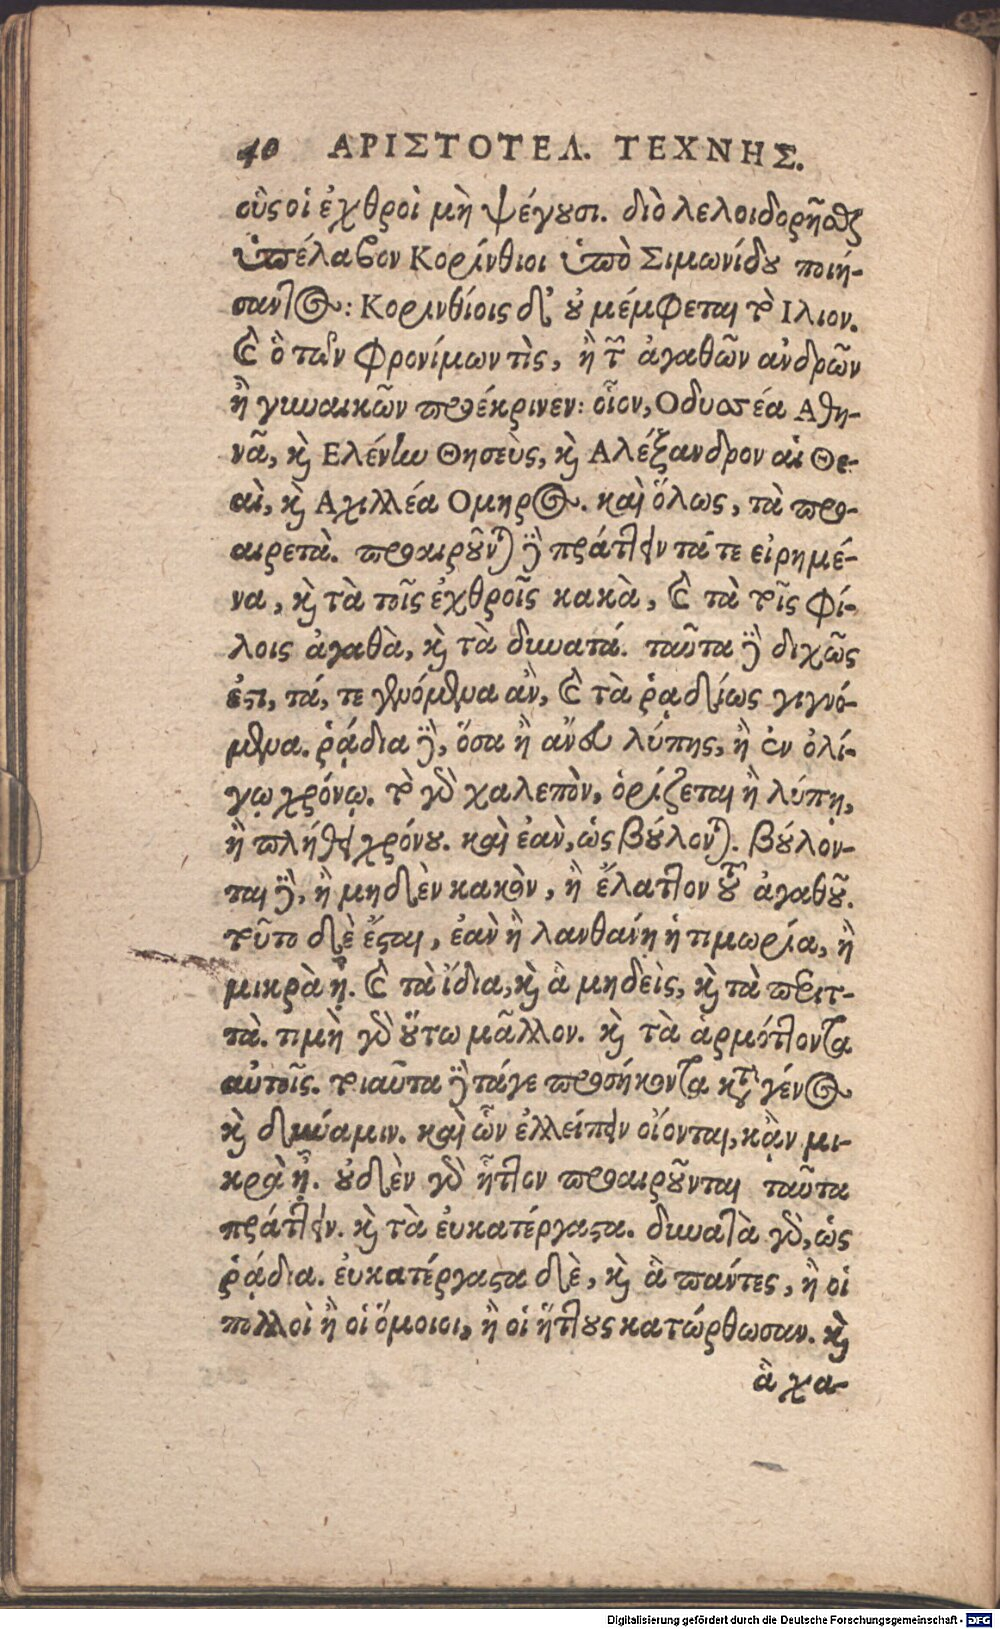 40 ΑΡΙΣΤΟΤΕΛ. ΤΕΧΝΗΣ.
οὓς οἱ ἐχθροὶ μὴ ψέγουσι. διὸ λελοιδορῆσθαι
ὑπέλαβον Κορίνθιοι ὑπὸ Σιμωνίδου ποιή-
σαντος: Κορινθίοις δ' οὐ μέμφεται τὸ Ιλιον.
καὶ ὃ τῶν φρονίμων τὶς, ἢ τῶν ἀγαθῶν ἀνδρῶν
ἢ γυναικῶν προέκρινεν: οἷον, Οδυσσέα Αθη-
νᾶ, καὶ Ελένην Θησεὺς, καὶ Αλέξανδρον αἱ Θε-
αὶ, καὶ Αχιλλέα Ομηρος. καὶ ὅλως, τὰ προ-
αιρετὰ. προαιροῦνται δὲ πράττειν τά τε εἰρημέ-
να, καὶ τὰ τοῖς ἐχθροῖς κακὰ, καὶ τὰ τοῖς φί-
λοις ἀγαθὰ, καὶ τὰ δυνατά. ταῦτα δὲ διχῶς
ἐστι, τά, τε γενόμενα ἂν, καὶ τὰ ῥᾳδίως γιγνό-
μενα. ῥᾴδια δὲ, ὅσα ἢ ἄνευ λύπης, ἢ ἐν ὀλί-
γῳ χρόνῳ. τὸ γὰρ χαλεπὸν, ὁρίζεται ἢ λύπῃ,
ἢ πλήθει χρόνου. καὶ ἐὰν, ὡς βούλονται. βούλον-
ται δὲ, ἢ μηδὲν κακὸν, ἢ ἔλαττον τοῦ ἀγαθοῦ.
τοῦτο δὲ ἔσται, ἐὰν ἢ λανθάνῃ ἡ τιμωρία, ἢ
μικρὰ ᾖ. καὶ τὰ ἴδια, καὶ ἃ μηδεὶς, καὶ τὰ περιτ-
τὰ. τιμὴ γὰρ οὕτω μᾶλλον. καὶ τὰ ἁρμόττοντα
αὐτοῖς. τοιαῦτα δὲ τάγε προσήκοντα κατὰ γένος
καὶ δύναμιν. καὶ ὧν ἐλλείπειν οἴονται, κἂν μι-
κρὰ ᾖ. οὐδὲν γὰρ ἧττον προαιροῦνται ταῦτα
πράττειν. καὶ τὰ εὐκατέργαστα. δυνατὰ γὰρ, ὡς
ῥᾴδια. εὐκατέργαστα δὲ, καὶ ἃ πάντες, ἢ οἱ
πολλοὶ ἢ οἱ ὅμοιοι, ἢ οἱ ἥττους κατώρθωσαν. καὶ
ἃ χα-
Digitalisierung gefördert durch die Deutsche Forschungsgemeinschaft - DFG